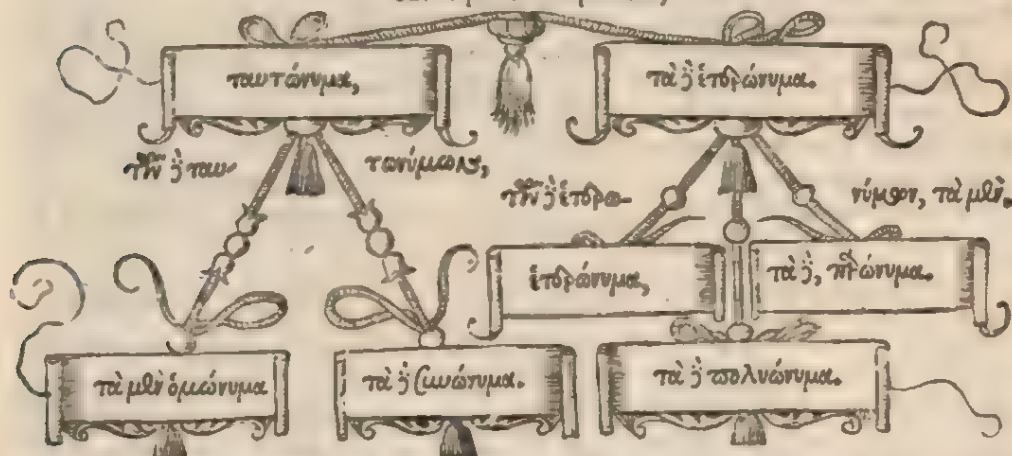 ταυτώνυμα,
τὰ δὲ ἑτερώνυμα.
τῶν δὲ ταυ-
τωνύμων,
τῶν δὲ ἑτερω-
νύμων, τὰ μὲν.
ἑτερώνυμα,
τὰ δὲ, παρώνυμα.
τὰ μὲν ὁμώνυμα
τὰ δὲ συνώνυμα.
τὰ δὲ πολυώνυμα.